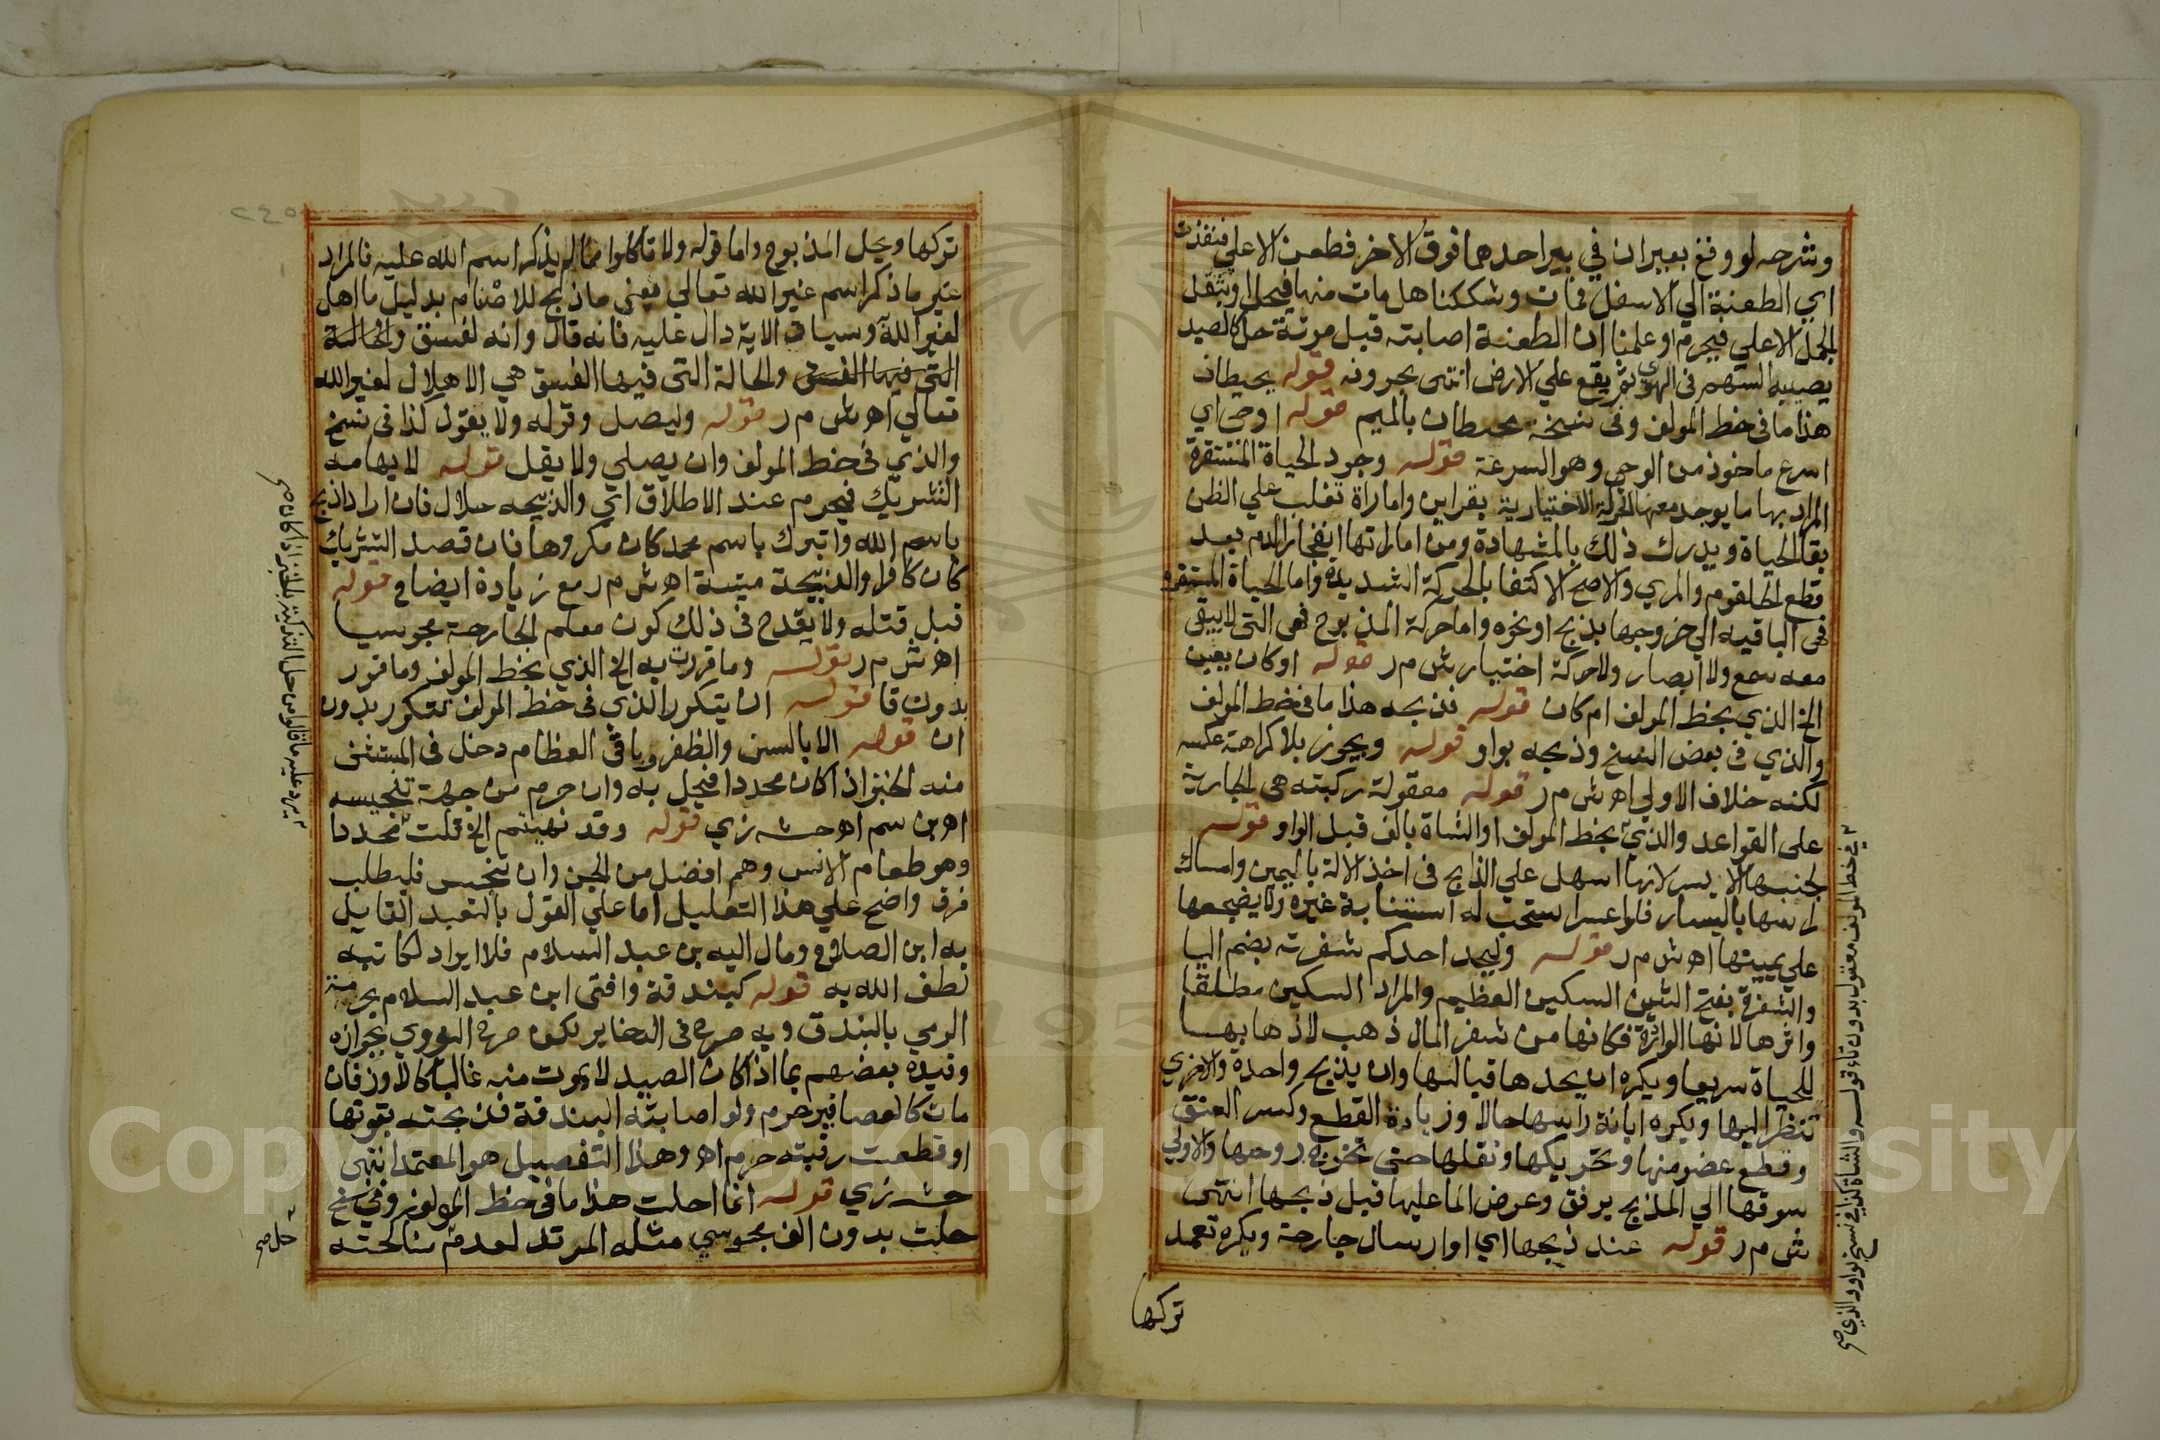 وشرحه لو وقع بعيران في بير احدهما فوق الاخر فطعن الاعلي فنفذت
اي الطعنة الي الاسفل فمات وشككنا هل مات منها فيحل او بثقل
الجمل الاعلي فيحرم او علمنا ان الطعنة اصابته قبل موته حل كالصيد
يصيبه السهم في الهوي ثم يقع علي الارض انتهى بحروفه قوله بحيطان
هذا ما في خط المولف وفي نسخة محيطان بالميم قوله اوحى اي
اسرع ماخوذ من الوحي وهو السرعة قوله وجود الحياة المستقرة
المراد بها ما يوجد معها الحركة الاختيارية بقراين وامارات تغلب علي الظن
بقا الحياة ويدرك ذلك بالمشاهدة ومن اماراتها انفجار الدم بعد
قطع الحلقوم والمري والاصح الاكتفا بالحركة الشديدة واما الحياة المستقره
فهى الباقيه الي خروجها بذبح او نحوه واما حركة المذبوح فهى التى لا يبقى
معه سمع ولا ابصار ولا حركة اختيار ش م ر قوله او كان يعين
الخ الذي بخط المولف ام كان قوله فذبحه هذا ما في خط المولف
والذي في بعض النسخ وذبحه بواو قوله ويجوز بلا كراهة عكسه
لكنه خلاف الاولي اه ش م ر قوله معقولة ركبته هى الجارية
على القواعد والذي بخط المولف او الشاة بالف قبل الواو قوله
لجنبها الايسر لانها اسهل علي الذابح في اخذ الالة باليمين وامساك
راسها باليسار فلو اعسر استحب له استنابة غيره ولا يضجعها
علي يمينها اه ش م ر قوله وليحد احدكم شفرته بضم اليا
والشفرة بفتح الشين السكين العظيم والمراد السكين مطلقا
واثرها لانها الواردة فكانها من شفر المال ذهب لاذهابها
للحياة سريعا ويكره ان يحدها قبالتها وان يذبح واحدة والاخري
تنظر اليها ويكره ابانة راسها حالا وزيادة القطع وكسر العنق
وقطع عضو منها وتحريكها ونقلها حتى تخرج روحها والاولي
سوقها الي المذبح برفق وعرض الما عليها قبل ذبحها انتهى
ش م ر قوله عند ذبحها اي او ارسال جارحة ويكره تعمد
تركها
في خط المولف معقول بدون تاء قوله والشاة كذا في نسخ بواو والذي صح
تركها ويحل المذبوح واما قوله ولا تاكلوا مما لم يذكر اسم الله عليه فالمراد
غير ما ذكر اسم غير الله تعالي يعنى ما ذبح للاصنام بدليل ما اهل
لغير الله وسياق الاية دال عليه فانه قال وانه لفسق والحالة
التى فيها الفسق والحالة التى فيها الفسق هي الاهلال لغير الله
تعالي اه ش م ر قوله وليصل وقوله ولا يقول كذا في نسخ
والذي في خط المولف وان يصلي ولا يقل قوله لايهامه
التشريك فيحرم عند الاطلاق اي والذبيحه حلال فان اراد اذبح
باسم الله واتبرك باسم محمد كان مكروها فان قصد التشريك
كان كافرا والذبيحة ميتة اه ش م ر مع زيادة ايضاح قوله
قبل قتله ولا يقدح في ذلك كون معلم الجارحة مجوسيا
اه ش م ر قوله وما قررت به الخ الذي بخط المولف وما قرر
بدون تا قوله ان يتكرر الذي في خط المولف بتكرر بدون
ان قوله الا بالسن والظفر وباقى العظام دخل في المستثنى
منه الخبز اذا كان محددا فيحل به وان حرم من جهة تنجيسه
اه بن سم اه حش زي قوله وقد نهيتم الخ قلت محددا
وهو طعام الانس وهم افضل من الجن وان تنجس فليطلب
فرق واضح علي هذا التعليل اما علي القول بالتعبد القايل
به ابن الصلاح ومال اليه بن عبد السلام فلا ايراد لكاتبه
لطف الله به قوله كبندقة وافتى ابن عبد السلام بحرمة
الرمي بالبندق وبه صرح في الذخاير لكن صرح النووي بجوازه
وقيده بعضهم بما اذا كان الصيد لا يموت منه غالبا كالاوز فان
مات كالعصافير حرم ولو اصابته البندقة فذبحته بقوتها
او قطعت رقبته حرم اه وهذا التفصيل هو المعتمد انتهى
حش زي قوله انما احلت هذا ما في خط المولف وفي نسخ
حلت بدون الف مجوسي مثله المرتد لعدم مناكحته